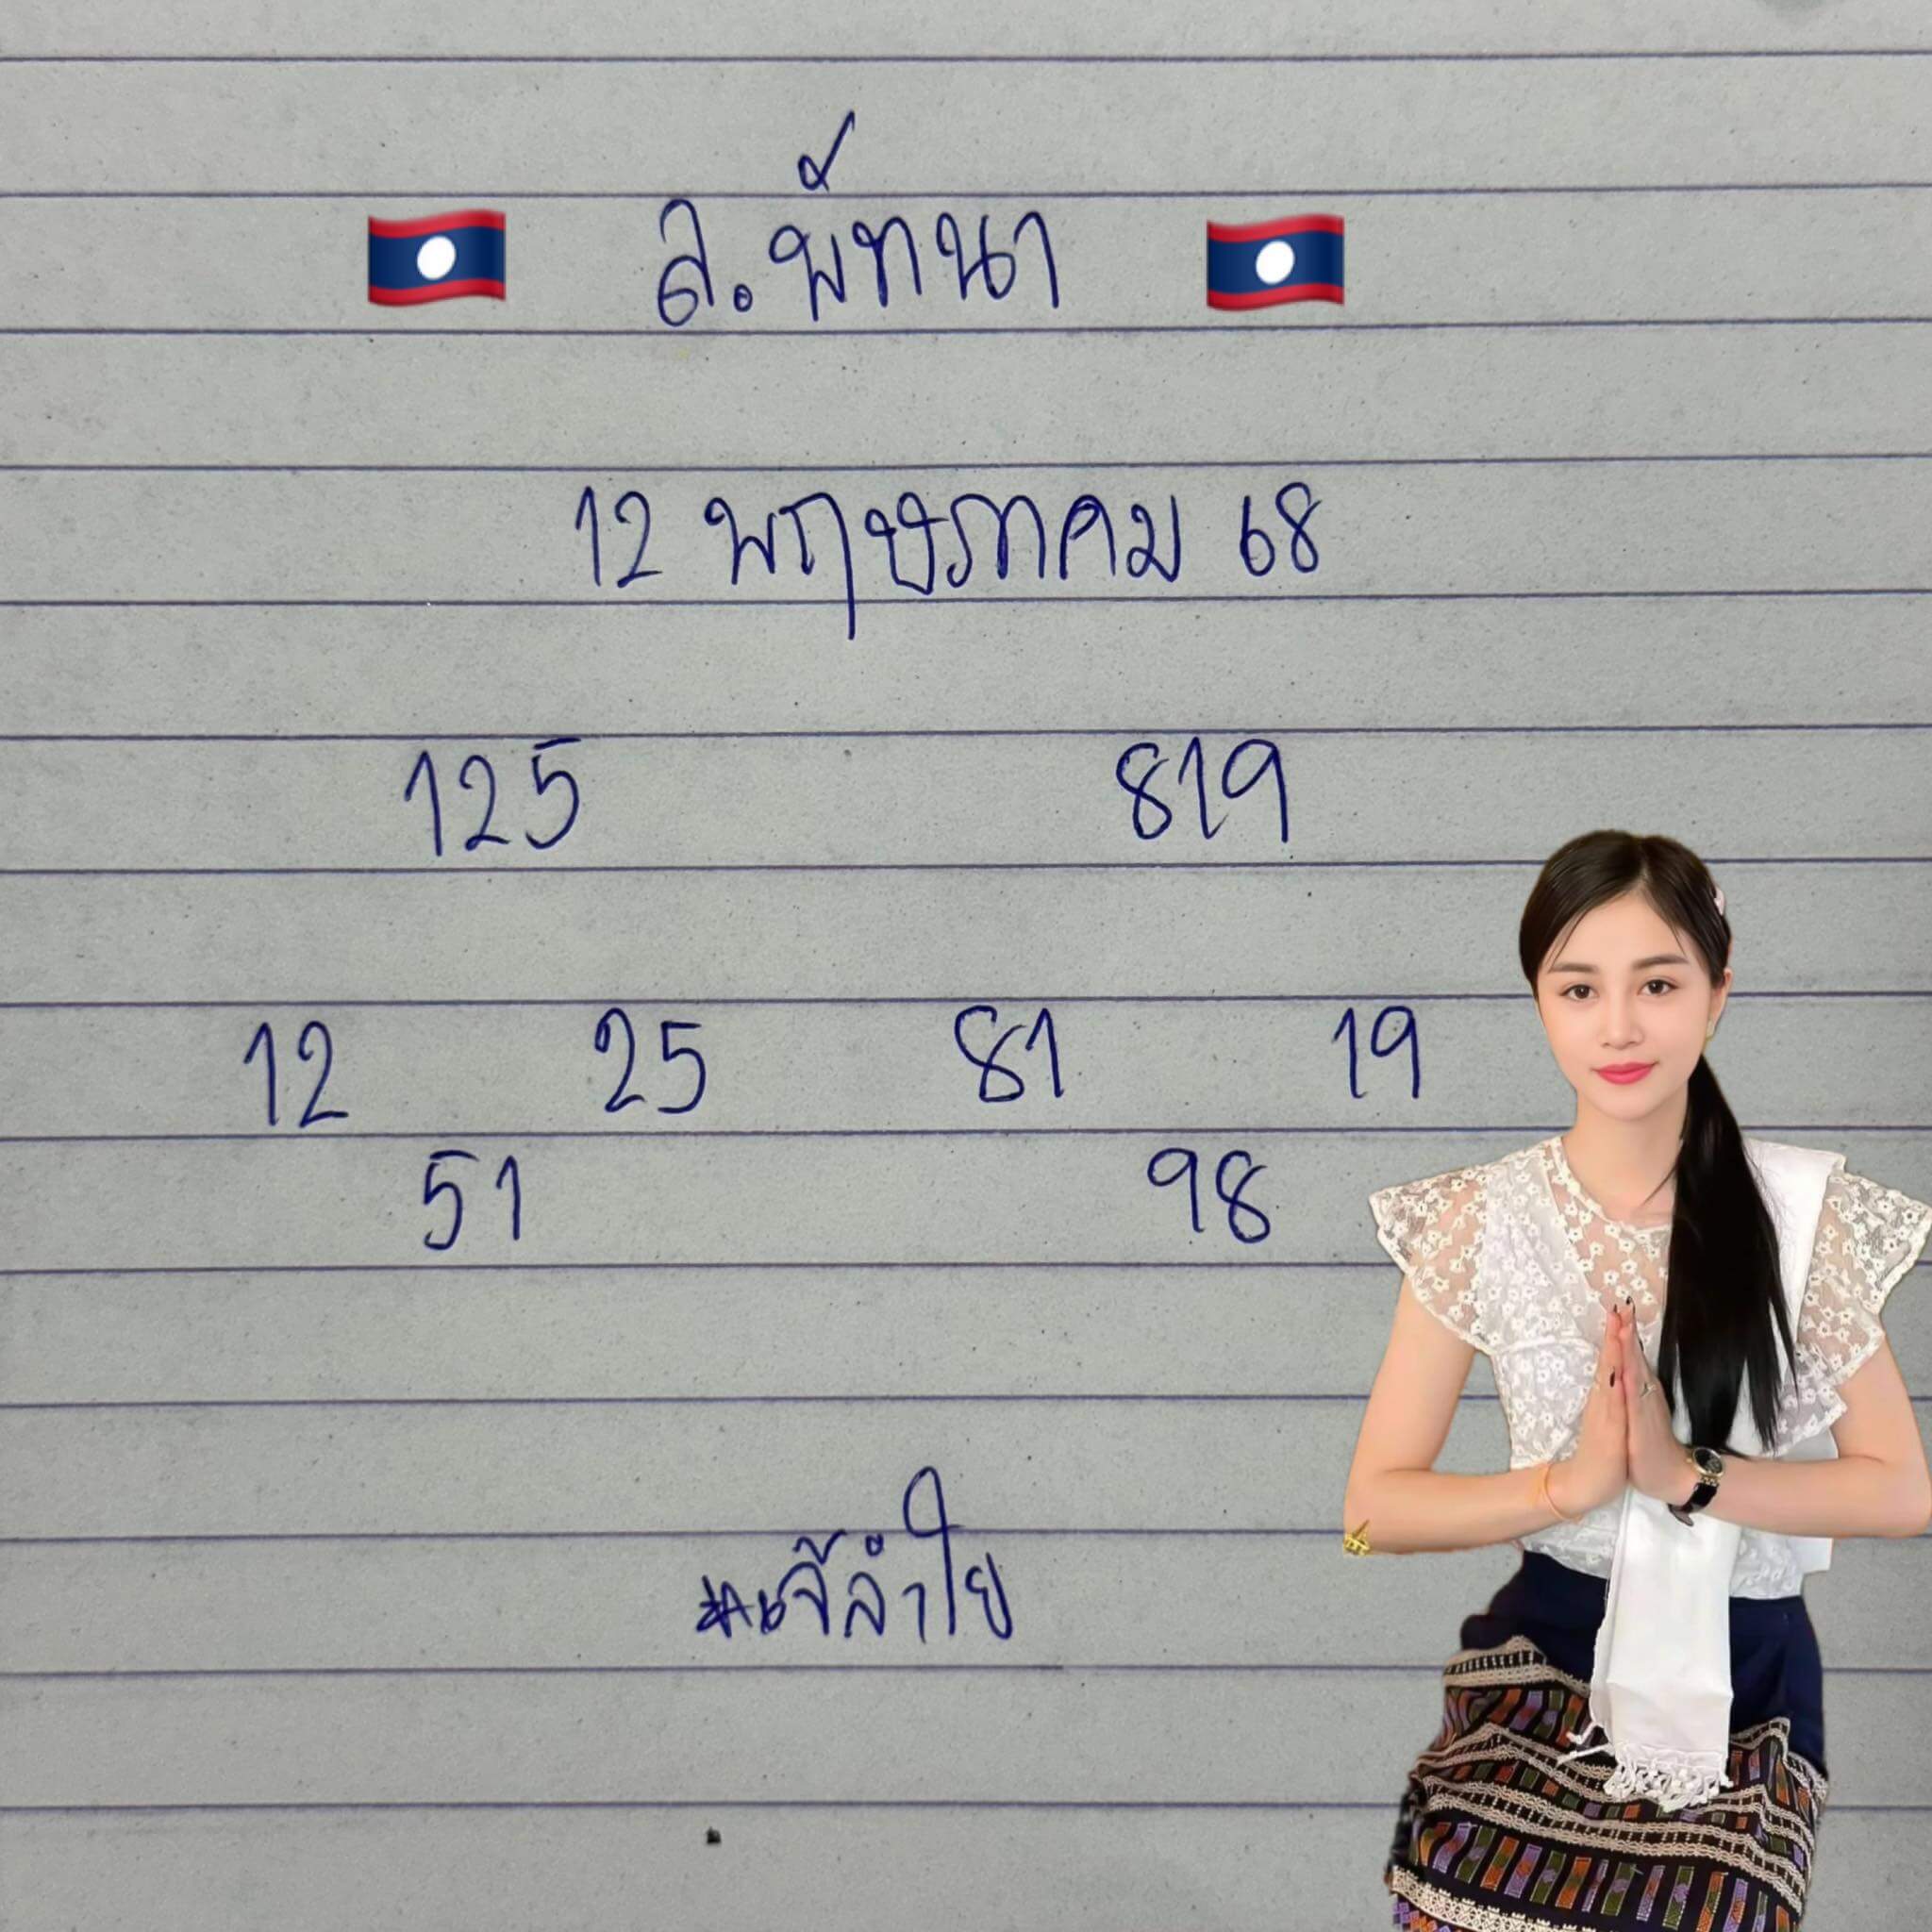 ล.พัทนา
12 พฤษภาคม 68
125 819
12 25 81 19
51 98
#เจ๊ลำใย